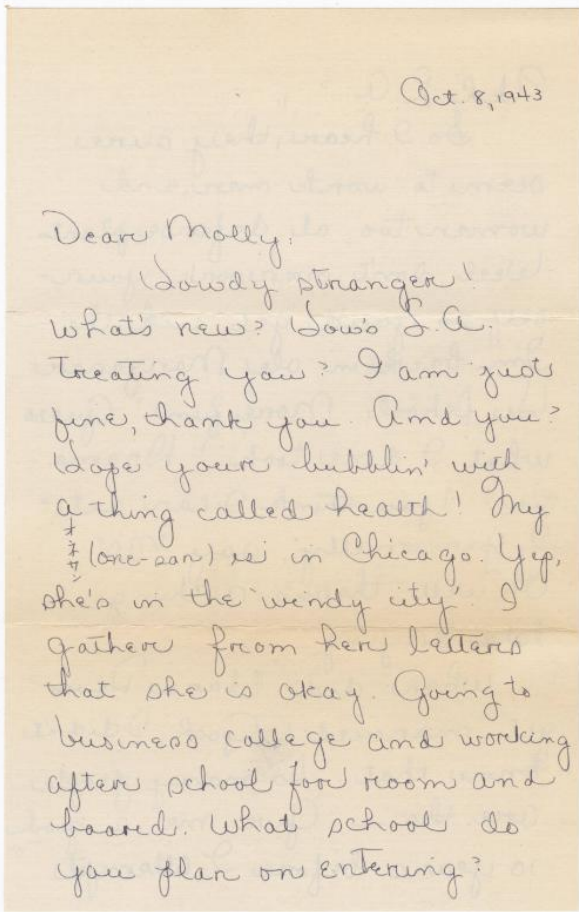 Oct. 8, 1943
Dear Molly,
Howdy stranger!
What's new? How's L.A.
treating you? I am just
fine, thank you. And you?
Hope you're bubblin' with
a thing called health! My
オネサン (one-san) is in Chicago. Yep,
she's in the 'windy city'. I
gather from her letters
that she is okay. Going to
business college and working
after school for room and
board. What school do
you plan on entering?